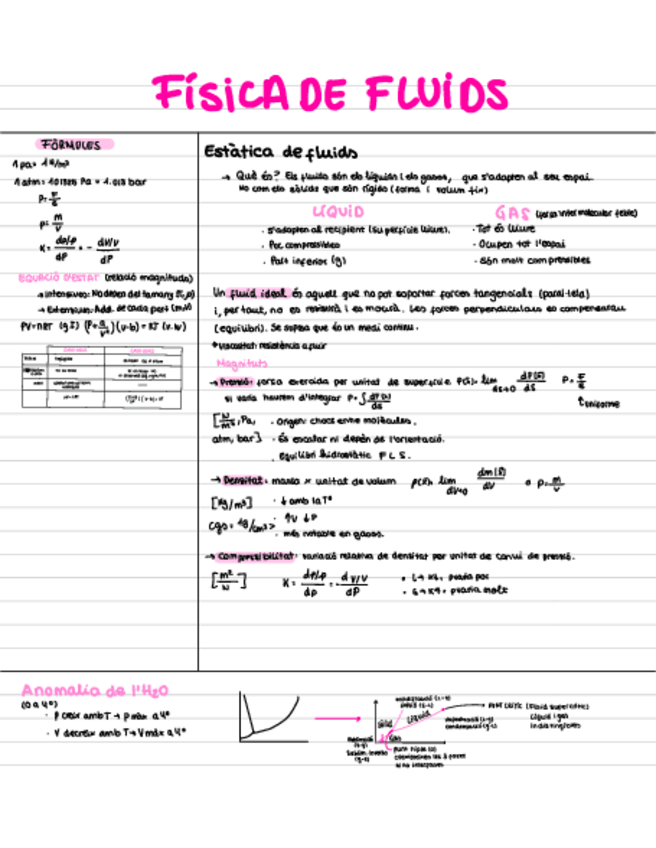 FÍSICA DE FLUIDS
FÓRMULES
1 pa = 1 N/m²
1 atm = 101325 Pa = 1.013 bar
P = F/S
ρ = m/V
K = dρ/ρ / dP = - dV/V / dP
EQUACIÓ D'ESTAT (relació magnituds)
→ Intensives: No depen del tamany
→ Extensives: Add. de cada part (m,V)
PV = nRT (g I) (P + a/v²)(v-b) = RT
Estàtica de fluids
→ Què és? Els fluids són els líquids i els gasos, que s'adapten al seu espai.
No com els sòlids que són rígids (forma i volum fix)
LÍQUID
· s'adapten al recipient (superfície lliure).
· Poc compressibles
· Part inferior (g)
GAS (força intermolecular feble)
· Tot és lliure
· Ocupen tot l'espai
· són molt compressibles
Un fluid ideal és aquell que no pot suportar forces tangencials (paral·lela)
i, per tant, no es resistirà i es mourà. Les forces perpendiculars es compensaran
(equilibri). Se suposa que és un medi continu.
* Viscositat: resistència a fluir
Magnituts
→ Pressió: força exercida per unitat de superfície P(s) = lim dS→0 dF(s)/dS P = F/S
si varia haurem d'integrar F = ∫ dF(s)/ds ↑ uniforme
[N/m², Pa, · Origen: chocs entre molècules.
atm, bar] · És escalar ni depèn de l'orientació.
· Equilibri hidrostàtic F L S.
→ Densitat: massa x unitat de volum ρ(s) = lim dV→0 dm(s)/dV o ρ = m/V
[kg/m³] · ↓ amb la Tº
cgs = 1g/cm³ > · ↑V ↓ρ
· més notable en gasos.
→ Compressibilitat: variació relativa de densitat per unitat de canvi de pressió.
[m²/N] K = dρ/ρ / dp = - dV/V / dP
· L → K↓, ρ varia poc
· G → K↑, ρ varia molt
Anomalia de l'H₂O
(0 a 4º)
· ρ creix amb T → ρ màx a 4º
· V decreix amb T → V mín a 4º
Sòlid
Líquid
Gas
PUNT CRÍTIC (Fluid supercrític)
Líquid i gas
indistingibles
Punt triple (s)
coexisteixen les 3 fases